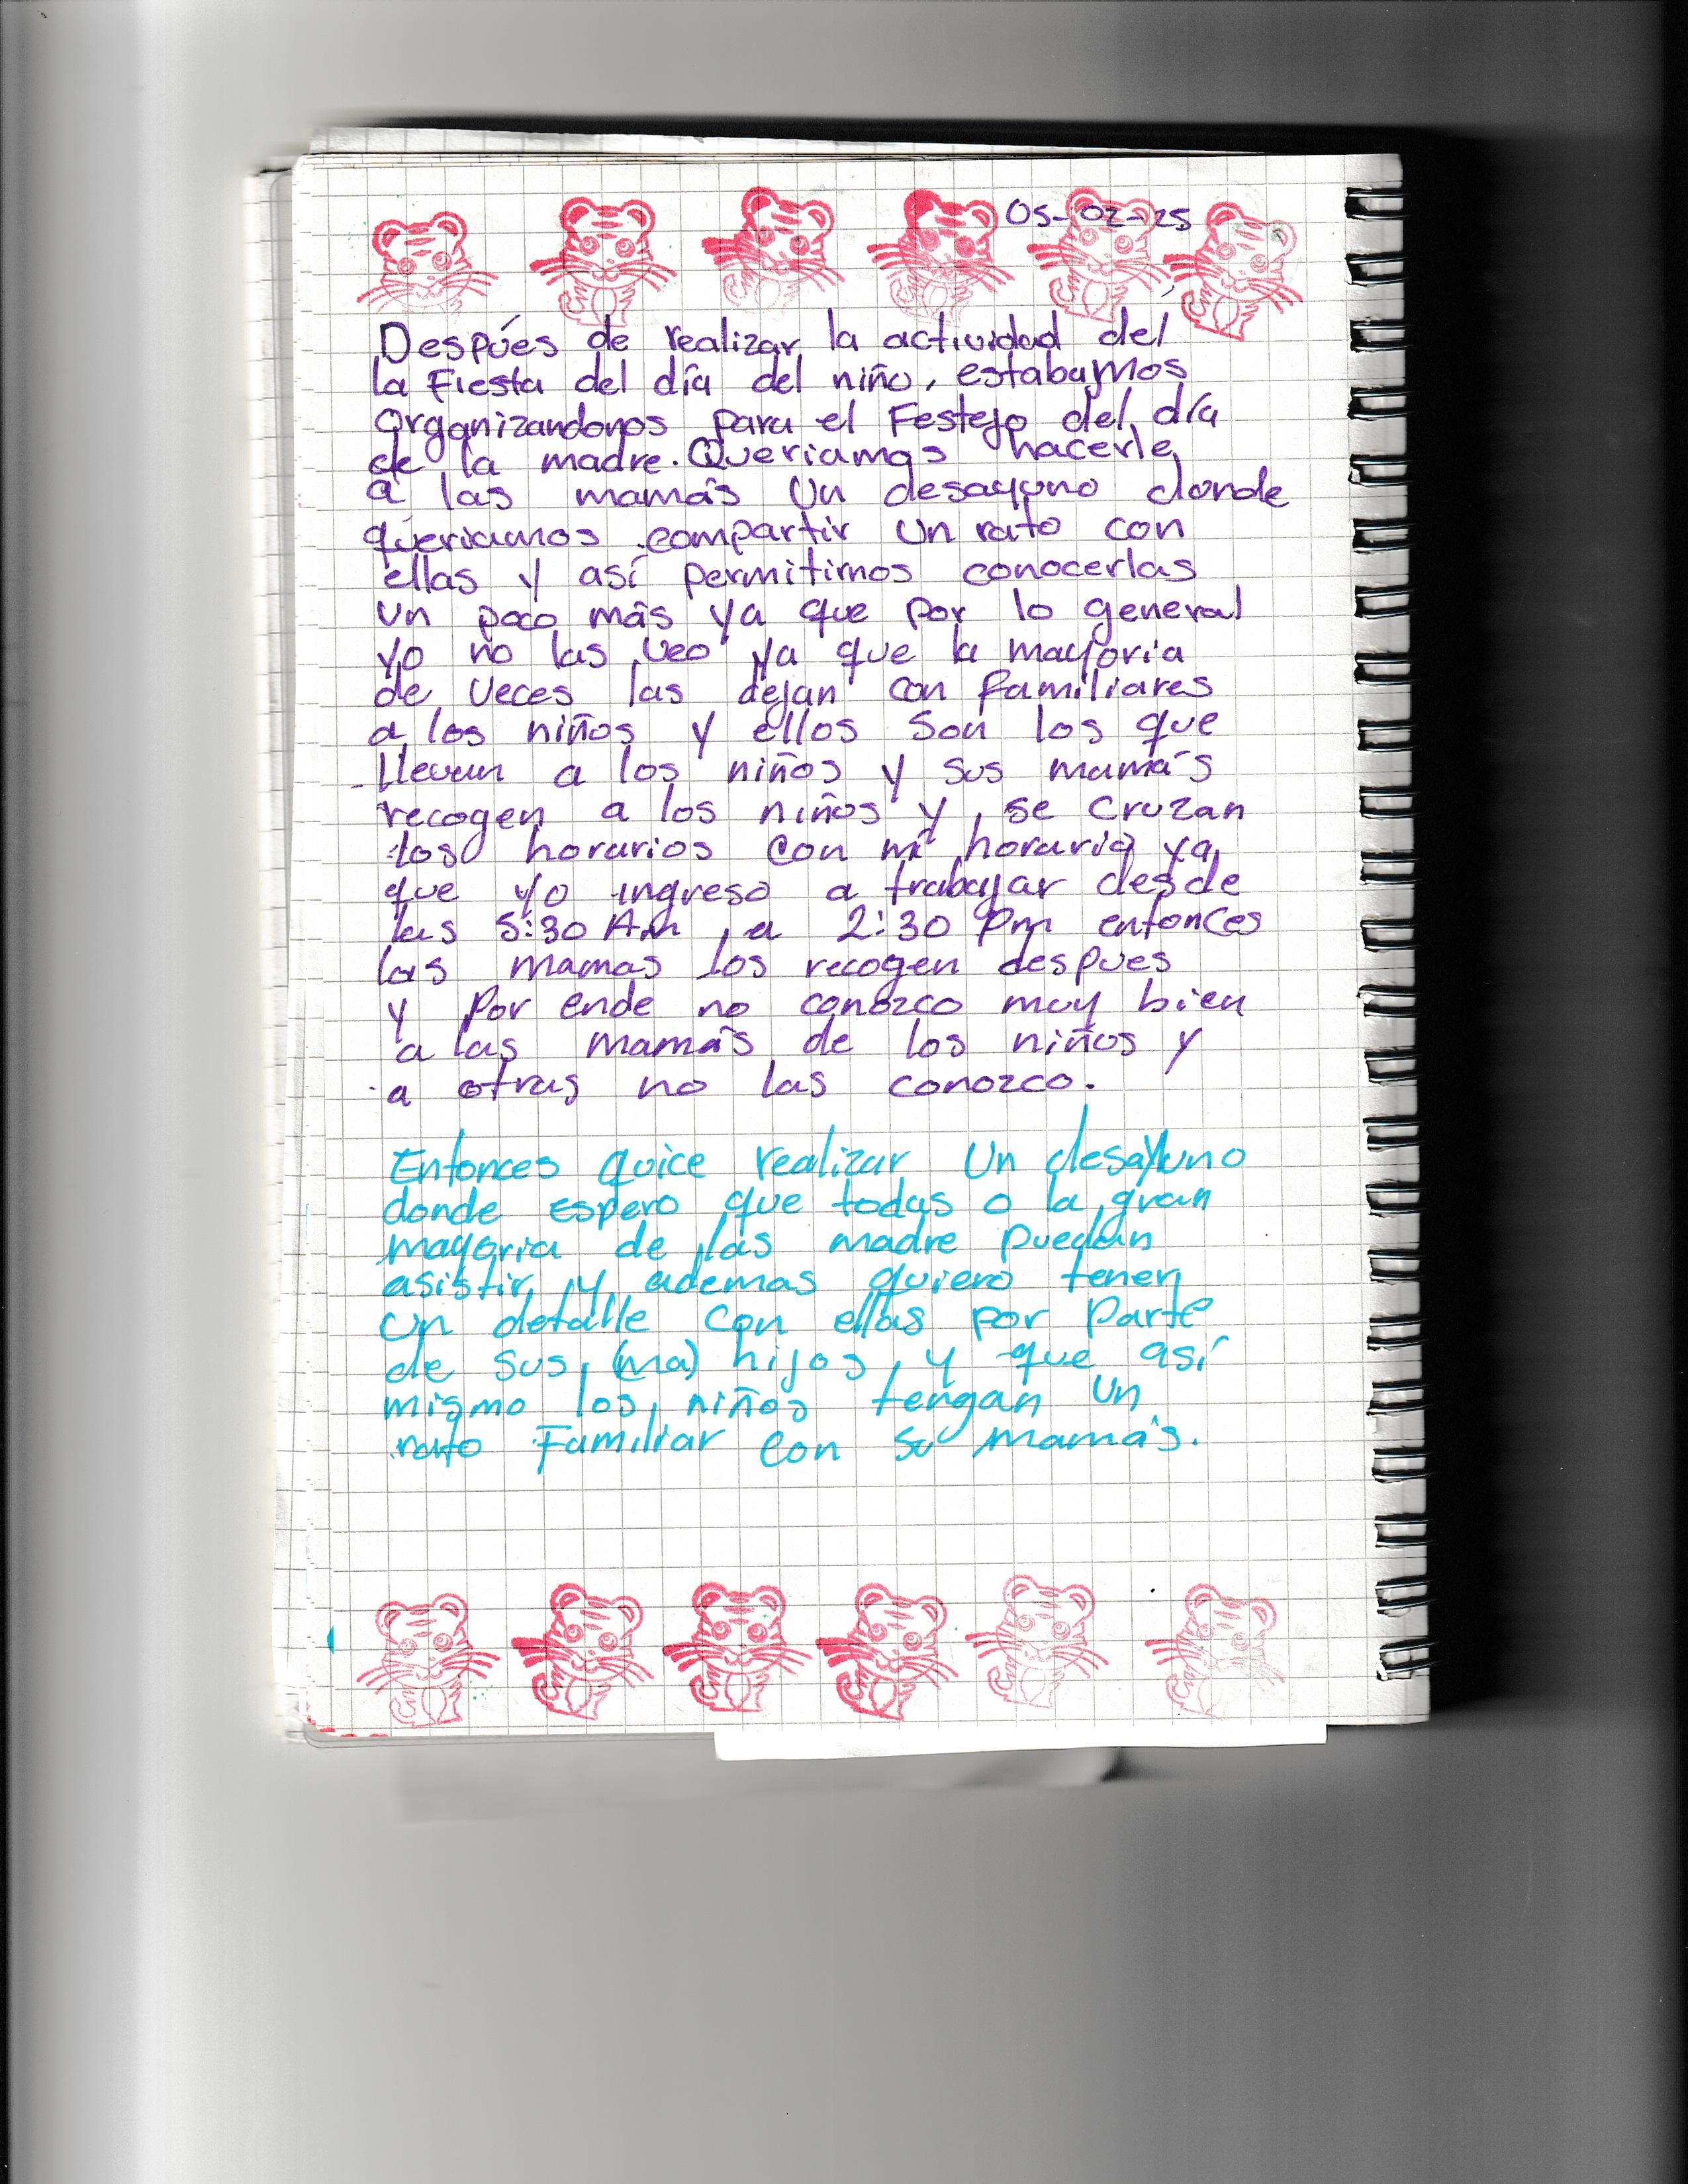 05-02-25
Despúes de realizar la actividad del
la Fiesta del día del niño, estabamos
organizandonos para el Festejo del día
de la madre. Queriamos hacerle
a las mamás Un desayuno donde
queriamos compartir Un rato con
ellas y así permitirnos conocerlas
un poco más ya que por lo general
yo no las veo ya que la mayoria
de veces las dejan con familiares
a los niños y ellos son los que
llevan a los niños y sus mamás
recogen a los niños y se cruzan
los horarios con mi horario ya
que yo ingreso a trabajar desde
las 5:30 Am a 2:30 Pm entonces
las mamas los recogen despues
y Por ende no conozco muy bien
a las mamás de los niños y
a otras no las conozco.
Entonces quice realizar Un desayuno
donde espero que todas o la gran
mayoria de las madre puedan
asistir y ademas quiero tener
Un detalle con ellas por Parte
de sus (ma) hijos, y que así
mismo los niños tengan Un
rato Familiar con su mamás.